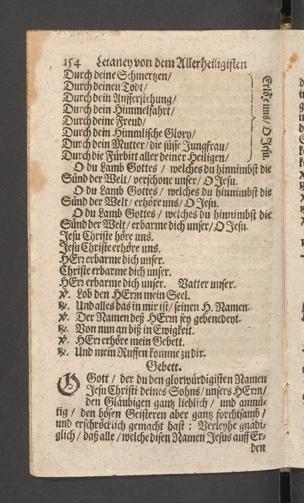 154 Letaney von dem Allerheiligsten
Durch deine Schmertzen/
Durch deinen Todt/
Durch dein Aufferstehung/
Durch dein Himmelfahrt/
Durch deine Freud/
Durch dein Himmlische Glory/
Durch dein Mutter/ die süsse Jungfrau/
Durch die Fürbitt aller deiner Heiligen/
Erlöß uns/ O Jesu.
O du Lamb Gottes / welches du hinnimbst die
Sünd der Welt/ verschone unser/ O Jesu.
O du Lamb Gottes/ welches du hinnimbst die
Sünd der Welt/ erhöre uns/ O Jesu.
O du Lamb Gottes/ welches du hinnimbst die
Sünd der Welt/ erbarme dich unser/ O Jesu.
Jesu Christe höre uns.
Jesu Christe erhöre uns.
HErr erbarme dich unser.
Christe erbarme dich unser.
HErr erbarme dich unser. Vatter unser.
℣. Lob den HErrn mein Seel.
℟. Und alles das in mir ist/ seinen H. Namen.
℣. Der Namen deß HErrn sey gebenedeyt.
℟. Von nun an biß in Ewigkeit.
℣. HErr erhöre mein Gebett.
℟. Und mein Ruffen komme zu dir.
Gebett.
O Gott / der du den glorwürdigisten Namen
Jesu Christi deines Sohns/ unsers HErrn/
den Gläubigen gantz lieblich / und anmü-
tig / den bösen Geisteren aber gantz forchtsamb/
und erschröcklich gemacht hast : Verleyhe gnädi-
glich/ daß alle/ welche disen Namen Jesus auff Er-
den